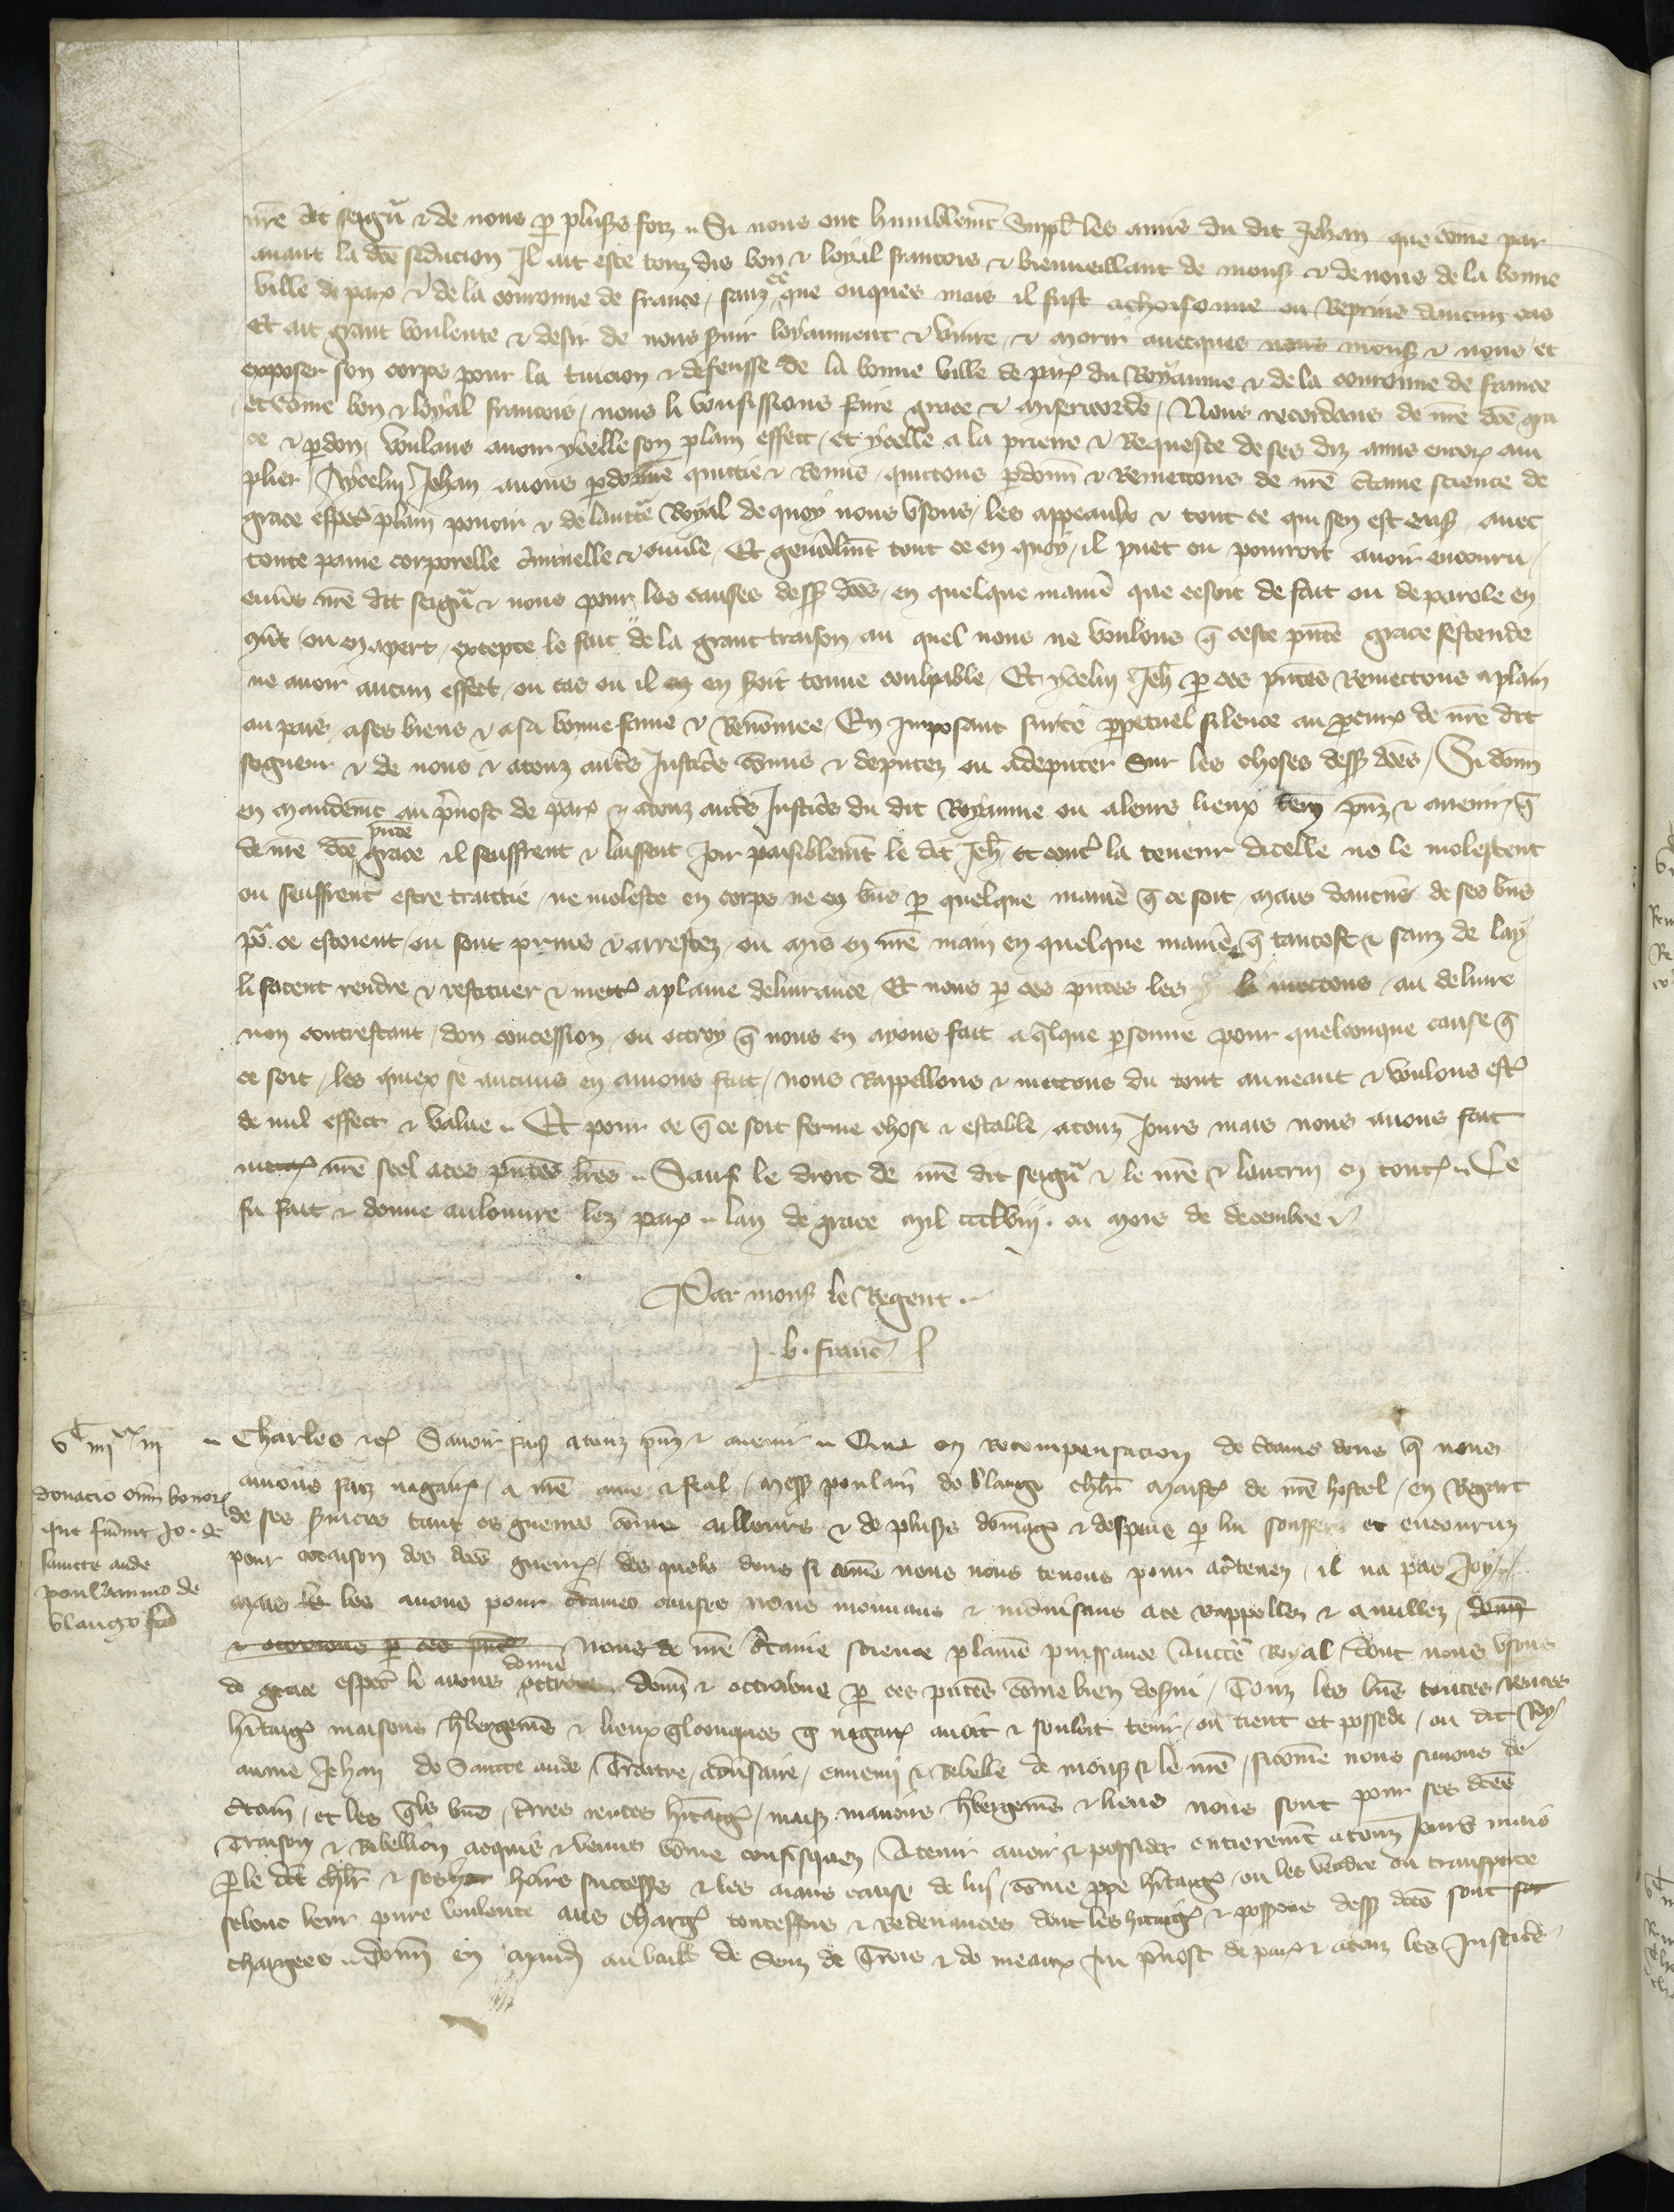 nre dit seigñ & de nous p̱ plus̉s foiz .. Si nous ont humblemẽt suppl̉ les amis du dit Jehan que cõme par
auant la dc̃e seducion Il ait este touz dis bon & loyal francois & bienueillant de mons̉ & de nous de la bonne
ville de par̉ & de la couronne de france / sanz ce que onques mais il fust achoisonne ou Reprins daucun cas
Et ait grant voulente & desir de nous s̉uir loyaument & viure / & morir auecques nous mons̉ & nous / et
exposer son corps pour la tuicion & defensse de la bonne ville de par̉ du Royaume & de la couronne de france
Et cõme bon & loyal francois / nous li vousissions faire grace & misericorde / Nous recordans de nr̃e dc̃e gra
ce & p̱don / voulans auoir ycelle son plain effect / et ycelle a la priere & Requeste de ses diz amis encor̉ am
plier / Aycelui Jehan auons p̱donne quictie & Remis / quictons p̱donñ & Remettons de nr̃e c̉taine science de
grace esp̱ec̉ plain pouoir & de lauctc̃ Royal de quoy nous vsons / les appeaulx & tout ce qui sen est ens̉ auec
toute paine corporelle c̉iminelle & ciuile / Et gen̉alm̃t tout ce en quoy / il puet ou pourroit auoir encouru /
enu̾s nr̃e dit seigñ & nous pour les causes dess̉ dc̃es / en quelque manie̾ que ce soit de fait ou de parole en
/ ou en apert / excepte le fait de la grant traison au quel nous ne voulons q̃ ceste pñte grace sestende
ne auoir aucun effect / ou cas ou il en en soit tenue coulpable / Et ycelui Jeh̃ p̱ ces pñtes Remettons a plain
au pais a ses biens & a sa bonne fame & Renõmee / En Imposant sur ce p̱petuel silence au p̱cur̉ de nr̃e dit
seigneur & de nous & a touz aut̉s Justic̉s cõmis & deputez ou a deputer sur les choses dess̉ dc̃es / Si donñ
en mandem̃t au p̉uost de par̉ & a touz aut̉s Justic̉s du dit Royaume ou a leurs lieux ten̉ pñz & auenir / q̃
de nr̃e dc̃e pñte grace il seuffrent & laissent Joir paisiblem̃t le dit Jeh̃ et cont̉ la teneur dicelle ne le molestent
ou seuffrent estre traictie / ne moleste en corps ne en bñs p̱ quelque manie̾ q̃ ce soit / mais daucũs de ses bñs
po̾ ce estoient / ou sont prins & arrestez / ou mis en nr̃e main en quelque manie̾ q̃ tantost & sanz delay
li facent rendre & restituer & mett̉ a plaine deliurance / Et nous p̱ ces pñtes les li mettons / au deliure
non contrestant / don concession / ou octroy q̃ nous en ayons fait a q̃lque p̱sonne pour quelconque cause q̃
ce soit / les quiex se aucuns en auions fait / nous Rappellons & mettons du tout au neant & voulons est̉
de nul effect & value .. Et pour ce q̃ ce soit ferme chose & estable a touz Jours mais nous auons fait
mett̉ nr̃e seel a ces pñtes lr̃es .. Sauf le droit de nr̃e dit seigñ & le nr̃e & lautrui en tout̉ .. Ce
fu fait & donne au louure lez par̉ .. lan de grace mil ccclviij . ou mois de decembre
Par mons̉ le Regent ..
J. b. franc̉
vc iiijxx iij
donacio om̃i bonor̉
que fuer̃nt Jo . de
sancta auda
poulanno de
blangi
.. Charles &c̉ Sauoir fais̉ a touz pñz & auenir .. Que en recompensacion de c̉tains dons q̃ nous
auions faiz nagair̉ / a nr̃e ame & feal / mess̉ poulain de blangi chlr̃ maist̉ de nr̃e hostel / en Regart
de ses s̉uices tant es guerres cõme ailleurs & de plus̉s dõmag̉ & despens p̱ lui souffers et encouruz
pour occaison des dc̃es guerr̉ / des quels dons si cõme nous nous tenons pour ac̉tenez / il na pas Joy /
mais les les auons pour c̉taines causes nous mouuans & induisans a ce Rappellez & anullez / donñ
& octroions p̱ ces pñtes nous de nr̃e c̉taine science plaine puissance Auctc̃ Royal / dont nous vsons
de grace esp̱ec̉ li auons donne octroie donñ & octroions p̱ ces pñtes cõme bien des̉ui / Touz les bñs toutes rentes
h̉itag̉ maisons h̉bergem̃s & lieux q̃lconques q̃ nagair̉ auoit & souloit tenir / ou tient et possede / ou dit Roy
aume Jehan de Saincte aude / Traitre / adu̾saire / ennemi & Rebelle de mons̉ & le nr̃e / sicõme nous sauons de
c̉tain / et les q̃ls bñs / t̉res rentes h̉itag̉ / mais̉ manoirs h̉bergem̃s & liens nous sont pour ses dc̃es
Traison & Rebellion acquis & venuz cõme confisquez / A tenir auoir & possider entierem̃t a touz Jours mais
P̱ le dit chlr̃ & ses hoirs success̉ & les aians cause de lui / cõme pp̱e h̉itag̉ / ou les vendre ou transporter
selonc leur pure voulente aus charg̉ & Redeuances dont les h̉itag̉ & poss̉ions dess̉ dc̃es sont
chargees .. donñ en mand̉ au bailli de Senz de Trois & de meaux Au p̉uost de par̉ & a touz les Justic̉s